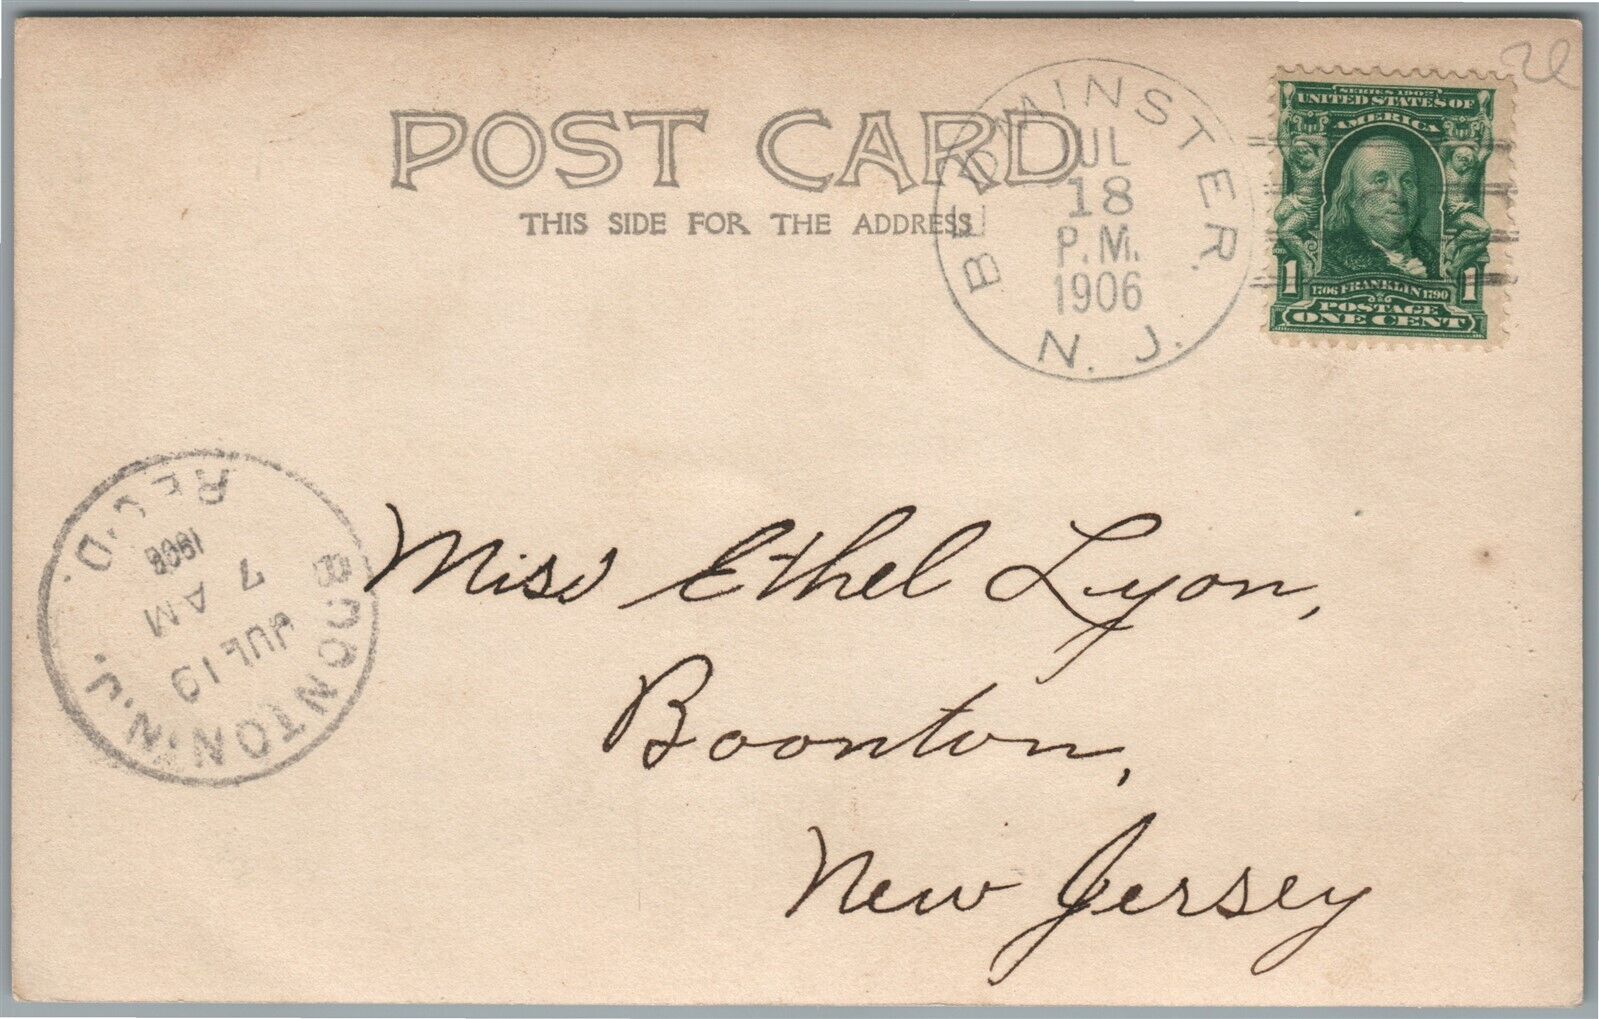 POST CARD
THIS SIDE FOR THE ADDRESS
BEDMINSTER.
JUL
18
P.M.
1906
N. J.
SERIES 1902
UNITED STATES OF
AMERICA
1 1706 FRANKLIN 1790 1
POSTAGE
ONE CENT
BOONTON, N.J.
JUL 19
7 AM
1906
REC'D.
Miss Ethel Lyon,
Boonton,
New Jersey